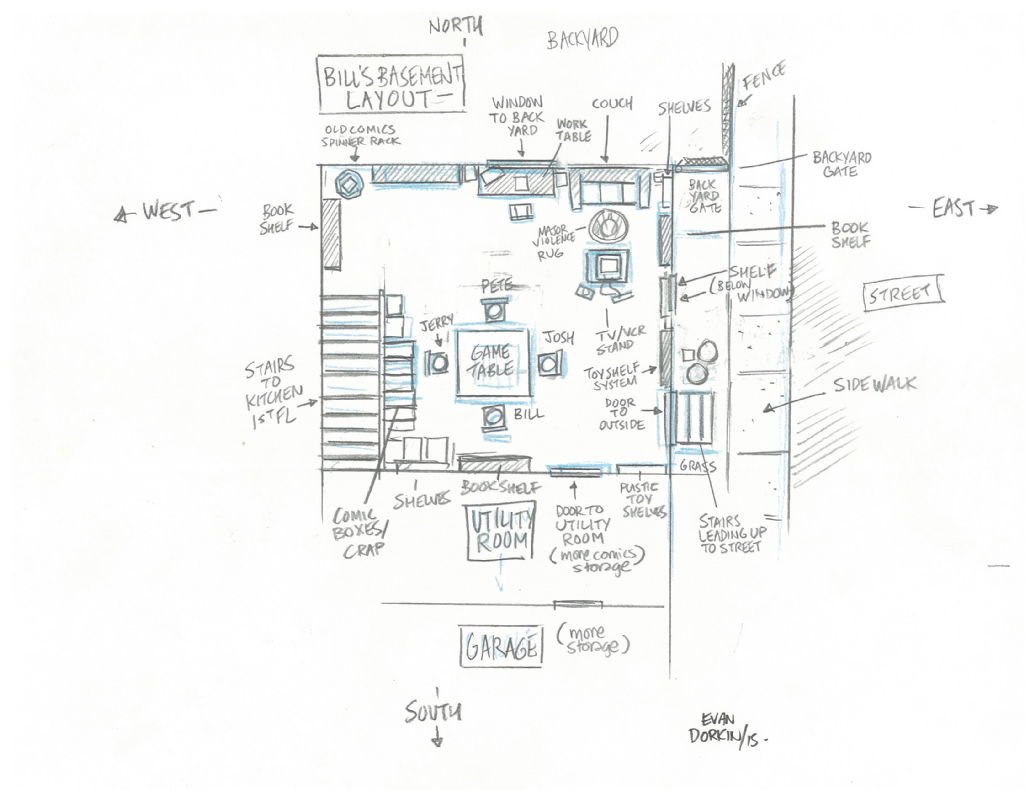 NORTH
BACKYARD
BILL'S BASEMENT
LAYOUT—
FENCE
WINDOW
TO BACK
YARD
WORK
TABLE
COUCH
SHELVES
OLD COMICS
SPINNER RACK
BACKYARD
GATE
BACK
YARD
GATE
WEST—
BOOK
SHELF
MAJOR
VIOLENCE
RUG
—EAST
BOOK
SHELF
SHELF
(BELOW
WINDOW)
STREET
PETE
JERRY
GAME
TABLE
JOSH
BILL
TV/VCR
STAND
TOY SHELF
SYSTEM
DOOR
TO
OUTSIDE
SIDEWALK
STAIRS
TO
KITCHEN
1ST FL
GRASS
SHELVES
BOOKSHELF
PLASTIC
TOY
SHELVES
COMIC
BOXES/
CRAP
UTILITY
ROOM
DOOR TO
UTILITY
ROOM
(more comics)
storage
STAIRS
LEADING UP
TO STREET
GARAGE
(more
storage)
SOUTH
EVAN
DORKIN/15-